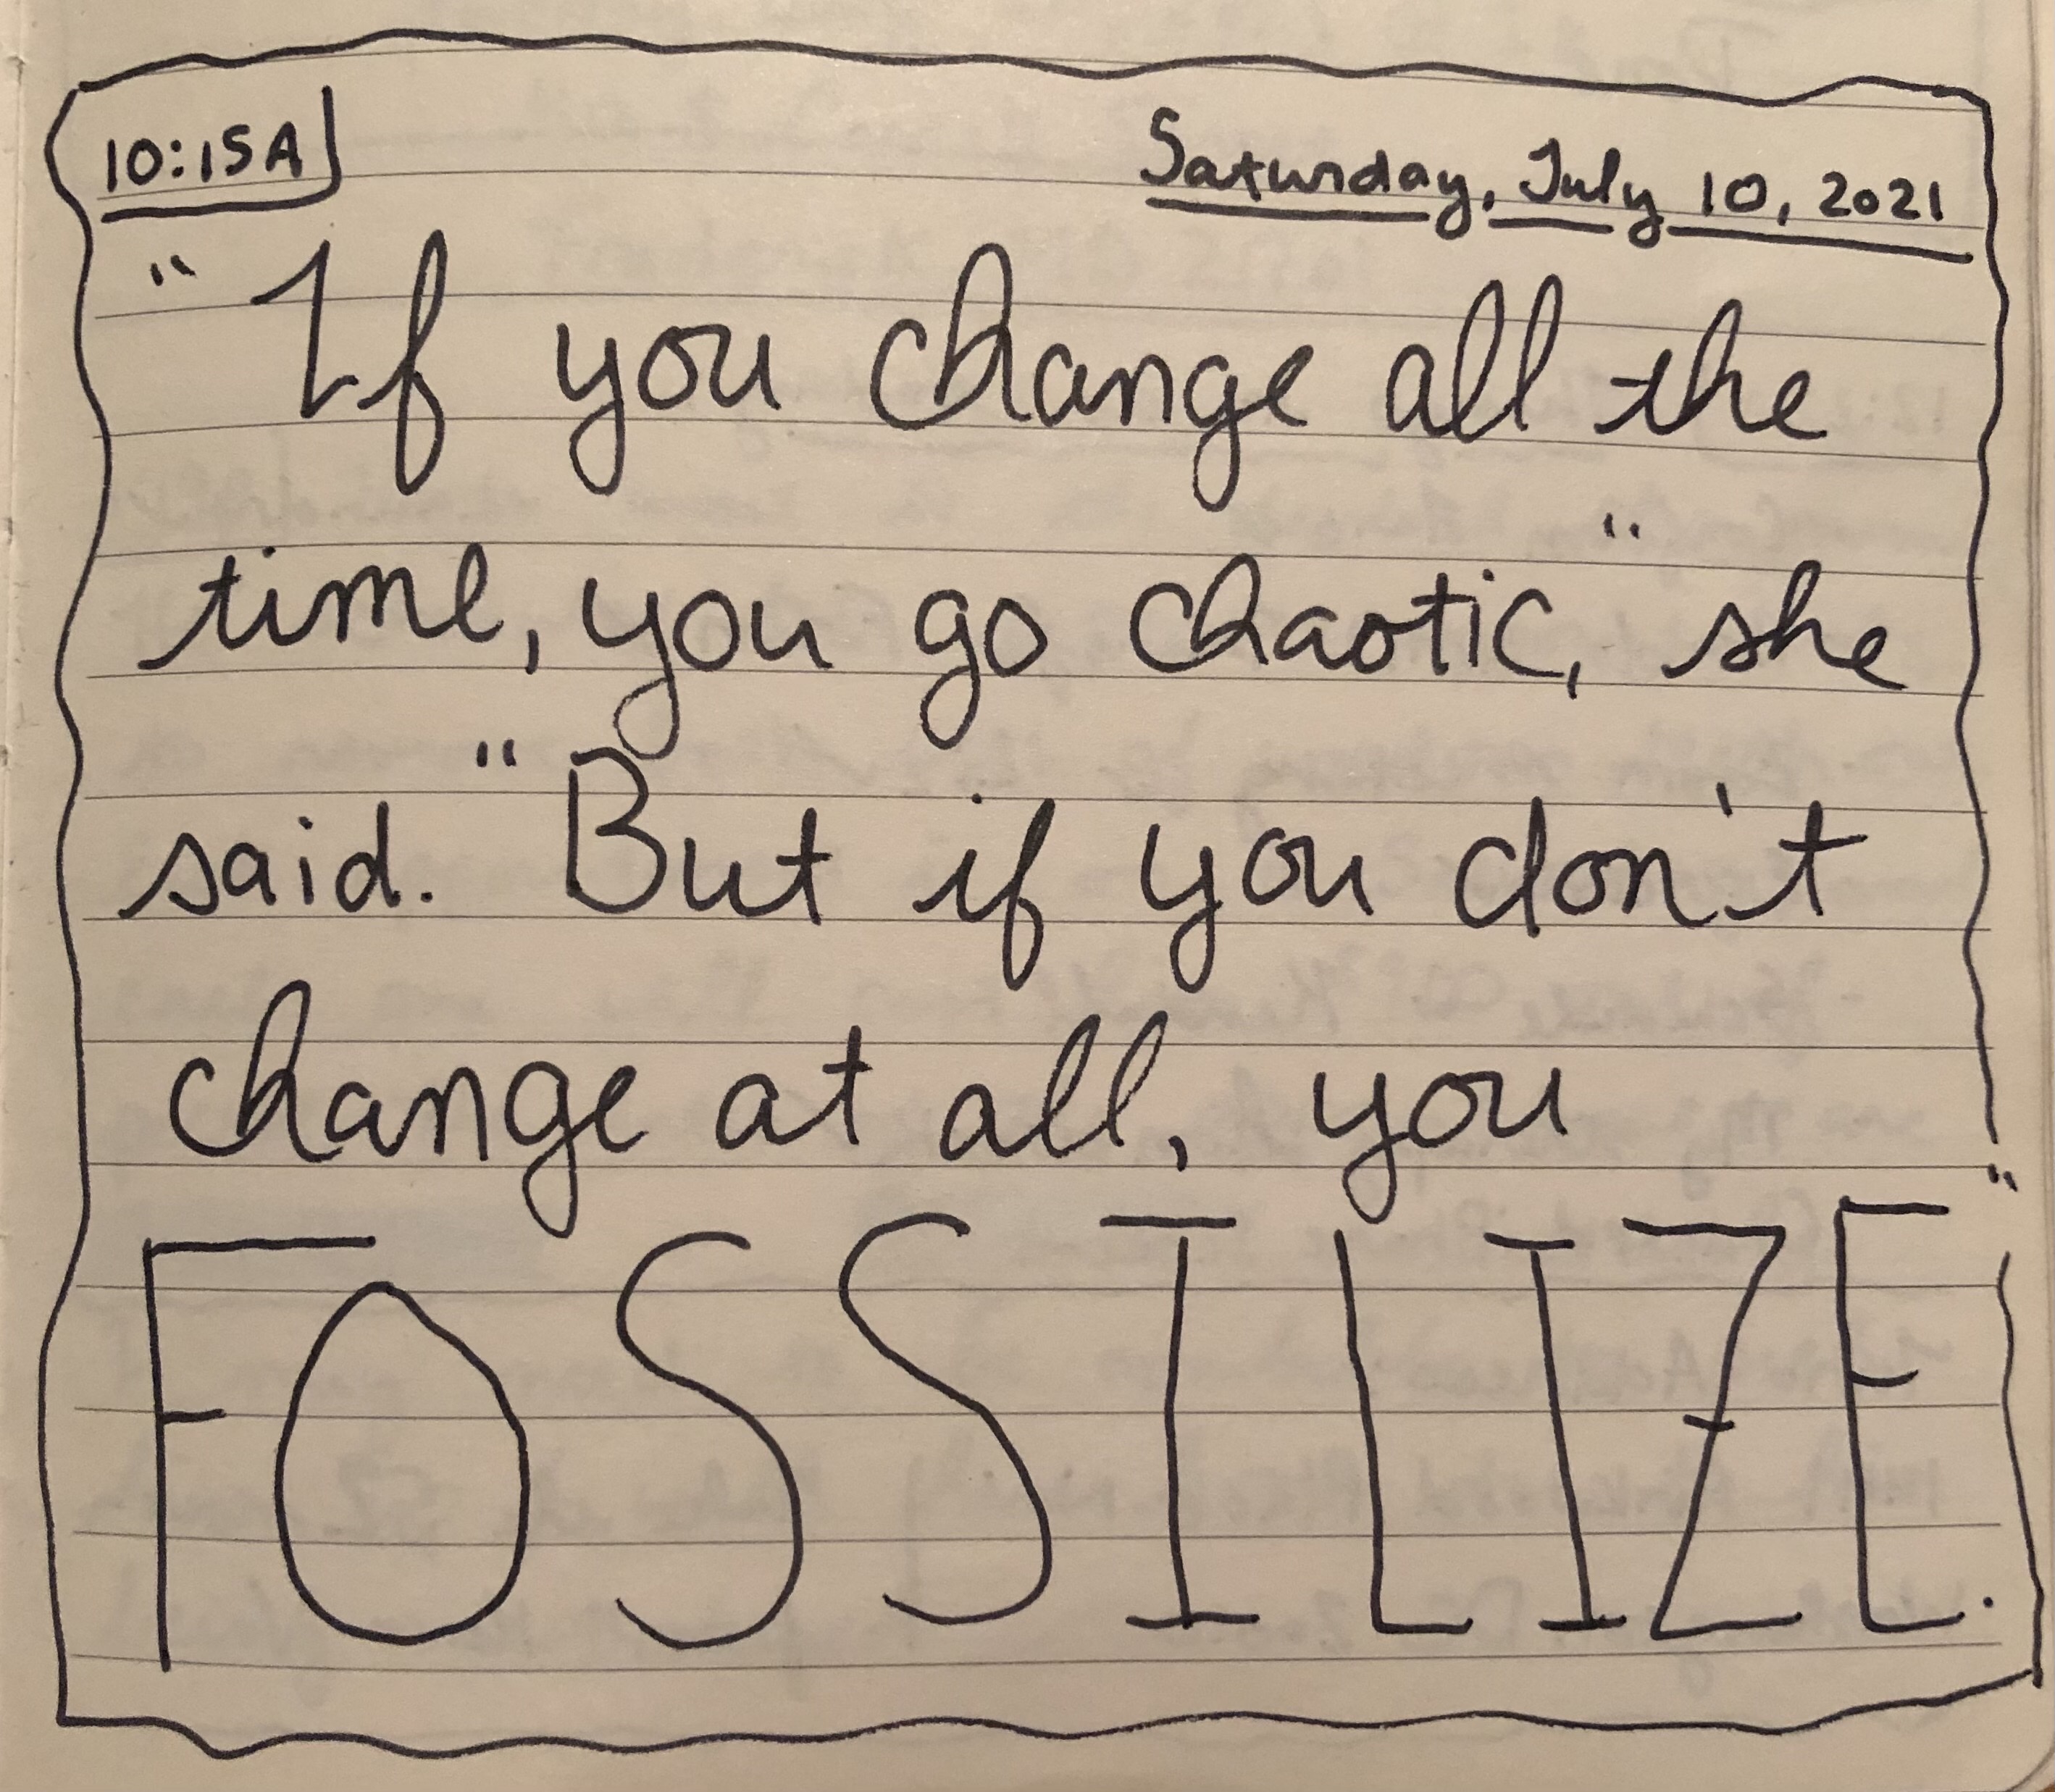 10:15A
Saturday, July 10, 2021
"If you change all the
time, you go chaotic," she
said. "But if you don't
change at all, you
FOSSILIZE."